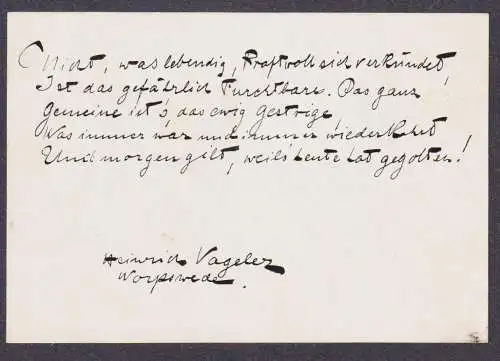 Nicht, was lebendig, kraftvoll sich verkündet,
Ist das gefährlich Furchtbare. Das ganz
Gemeine ist's, das ewig Gestrige
Was immer war und immer wiederkehrt
Und morgen gilt, weil's heute hat gegolten!
Heinrich Vogeler
Worpswede.